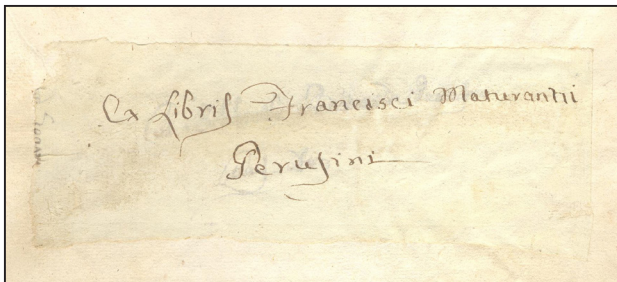 Ex Libris Francisci Maturantii
Perusini